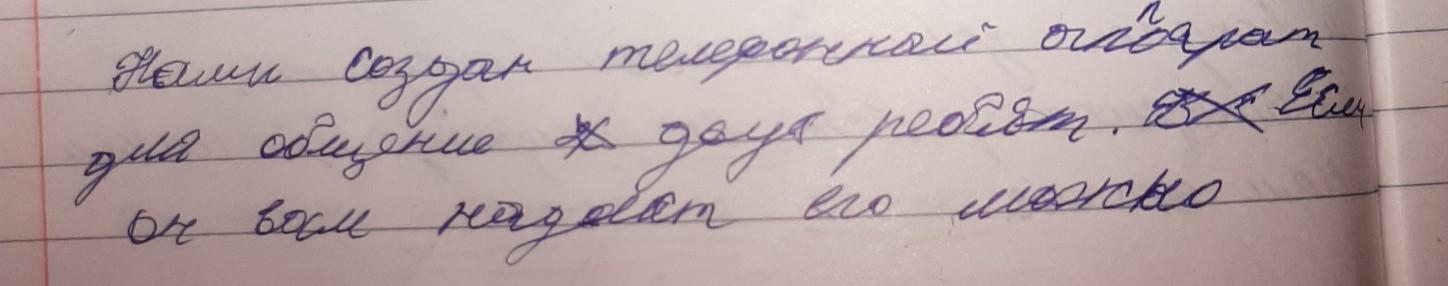 Нами создан телефонный аппарат
для общение двух ребят. Если
он вам надоест его можно